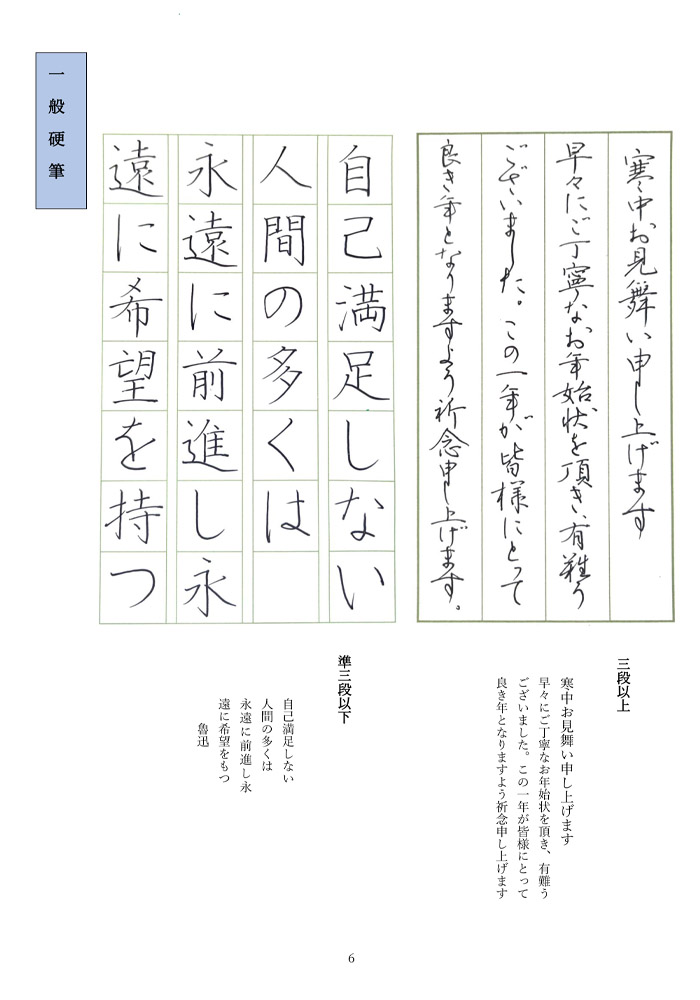 一般硬筆
寒中お見舞い申し上げます
早々にご丁寧なお年始状を頂き、有難う
ございました。この一年が皆様にとって
良き年となりますよう祈念申し上げます。
自己満足しない
人間の多くは
永遠に前進し永
遠に希望を持つ
三段以上
寒中お見舞い申し上げます
早々にご丁寧なお年始状を頂き、有難う
ございました。この一年が皆様にとって
良き年となりますよう祈念申し上げます
準三段以下
自己満足しない
人間の多くは
永遠に前進し永
遠に希望をもつ
魯迅
6